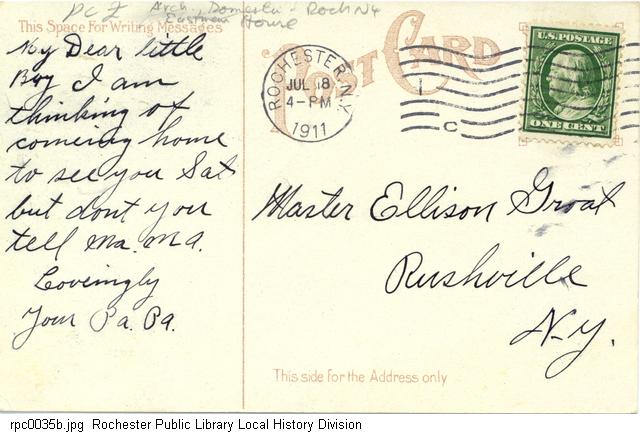 PC I Arch., Domestic - Roch NY
Eastman House
This Space For Writing Messages
My Dear little
Boy I am
thinking of
comeing home
to see you Sat
but dont you
tell Ma. Ma.
Loveingly
Your Pa. Pa.
POST CARD
ROCHESTER, N.Y.
JUL 18
4-PM
1911
1
C
U.S. POSTAGE
ONE CENT
Master Ellison Groat
Rushville
N.Y.
This side for the Address only
rpc0035b.jpg Rochester Public Library Local History Division